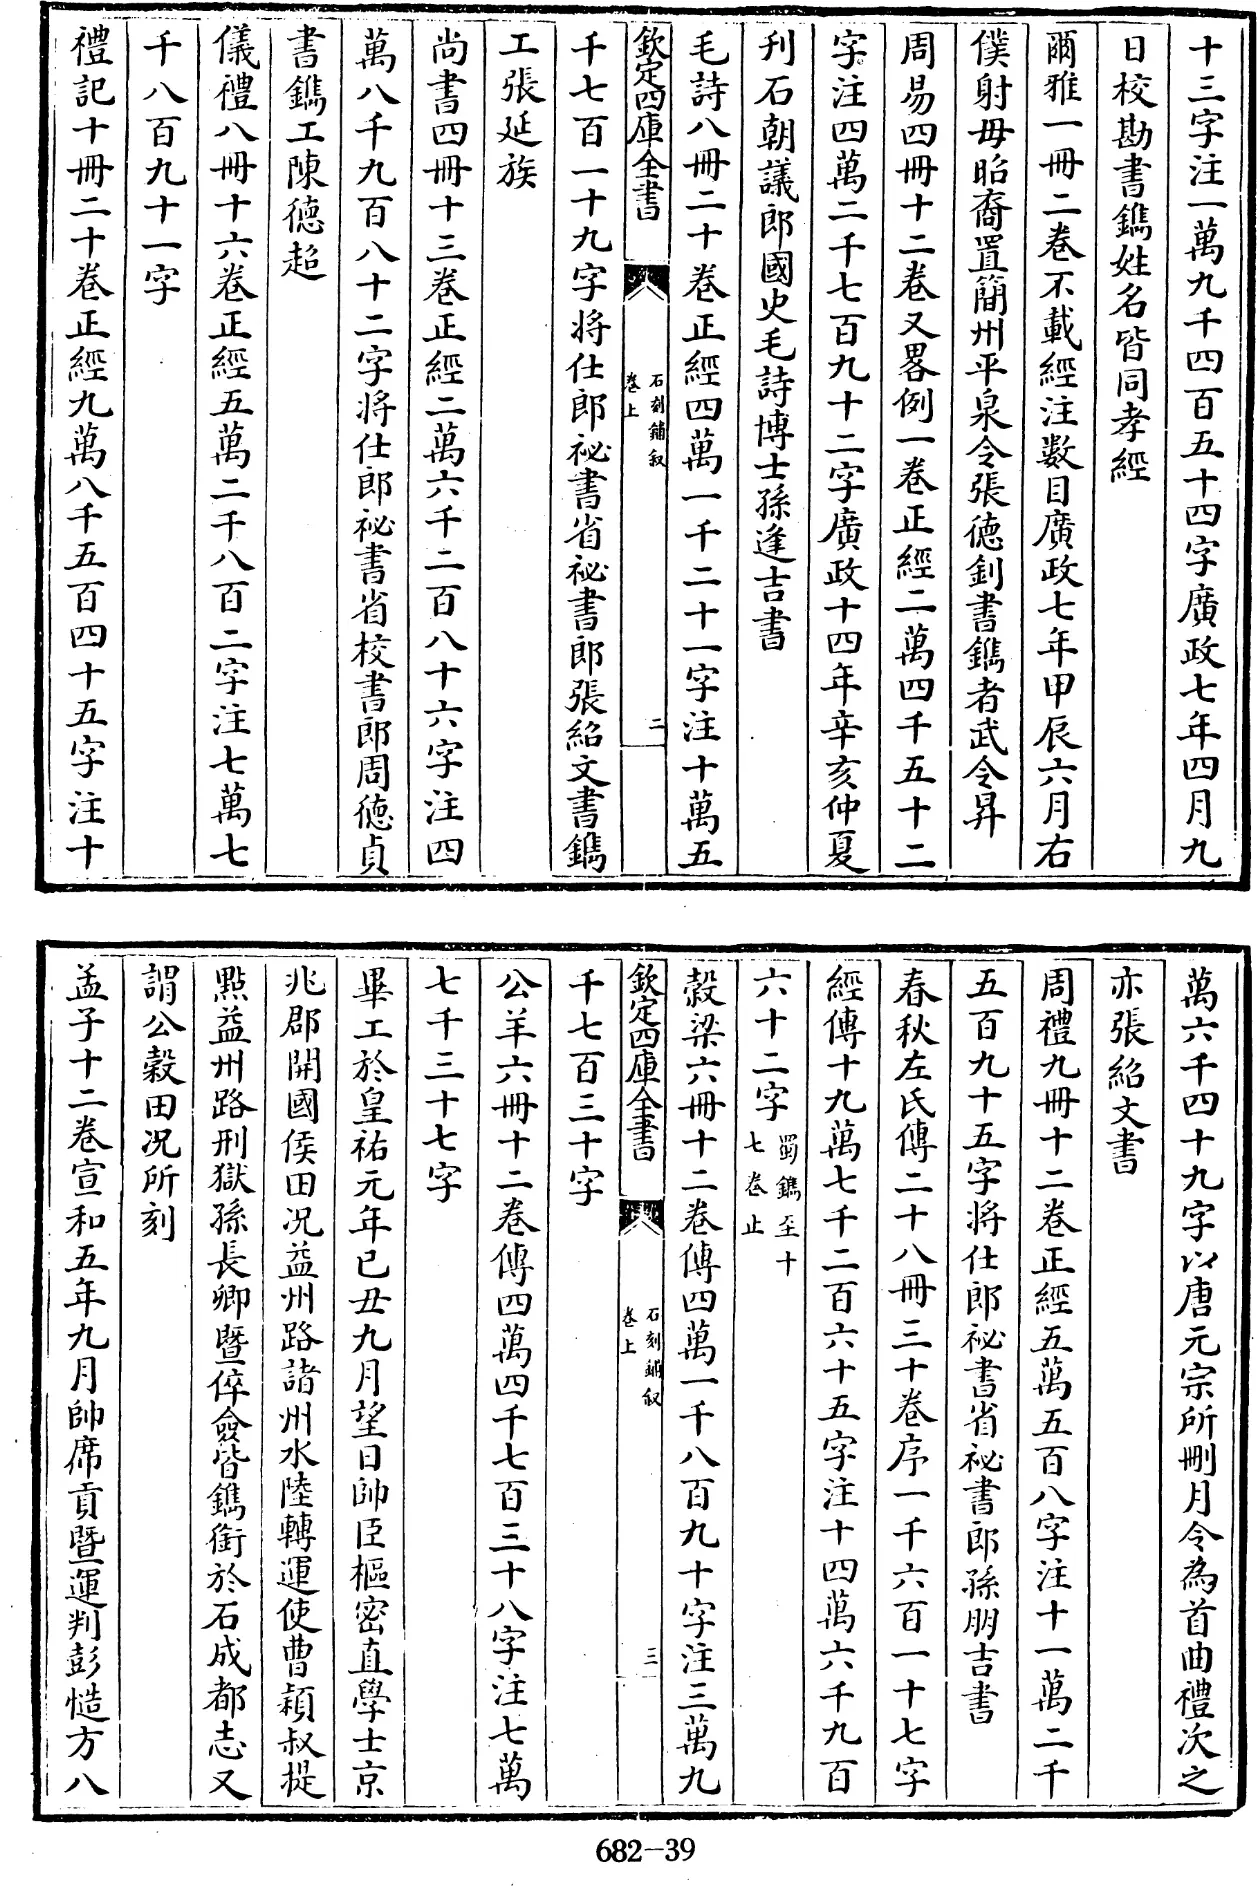 十三字注一萬九千四百五十四字廣政七年四月九
日校勘書鐫姓名皆同孝經
爾雅一冊二卷不載經注數目廣政七年甲辰六月右
僕射毋昭裔置簡州平泉令張德釗書鐫者武令昇
周易四冊十二卷又畧例一卷正經二萬四千五十二
字注四萬二千七百九十二字廣政十四年辛亥仲夏
刊石朝議郎國史毛詩博士孫逢吉書
毛詩八冊二十卷正經四萬一千二十一字注十萬五
欽定四庫全書
石刻鋪叙
卷上
二
千七百一十九字將仕郎祕書省祕書郎張紹文書鐫
工張延族
尚書四冊十三卷正經二萬六千二百八十六字注四
萬八千九百八十二字將仕郎祕書省校書郎周德貞
書鐫工陳德超
儀禮八冊十六卷正經五萬二千八百二字注七萬七
千八百九十一字
禮記十冊二十卷正經九萬八千五百四十五字注十
萬六千四十九字以唐元宗所刪月令為首曲禮次之
亦張紹文書
周禮九冊十二卷正經五萬五百八字注十一萬二千
五百九十五字將仕郎祕書省祕書郎孫朋吉書
春秋左氏傳二十八冊三十卷序一千六百一十七字
經傳十九萬七千二百六十五字注十四萬六千九百
六十二字蜀鐫至十
七卷止
穀梁六冊十二卷傳四萬一千八百九十字注三萬九
欽定四庫全書
石刻鋪叙
卷上
三
千七百三十字
公羊六冊十二卷傳四萬四千七百三十八字注七萬
七千三十七字
畢工於皇祐元年已丑九月望日帥臣樞密直學士京
兆郡開國侯田况益州路諸州水陸轉運使曹穎叔提
點益州路刑獄孫長卿暨倅僉皆鐫銜於石成都志又
謂公穀田况所刻
孟子十二卷宣和五年九月帥席貢暨運判彭慥方八
682-39